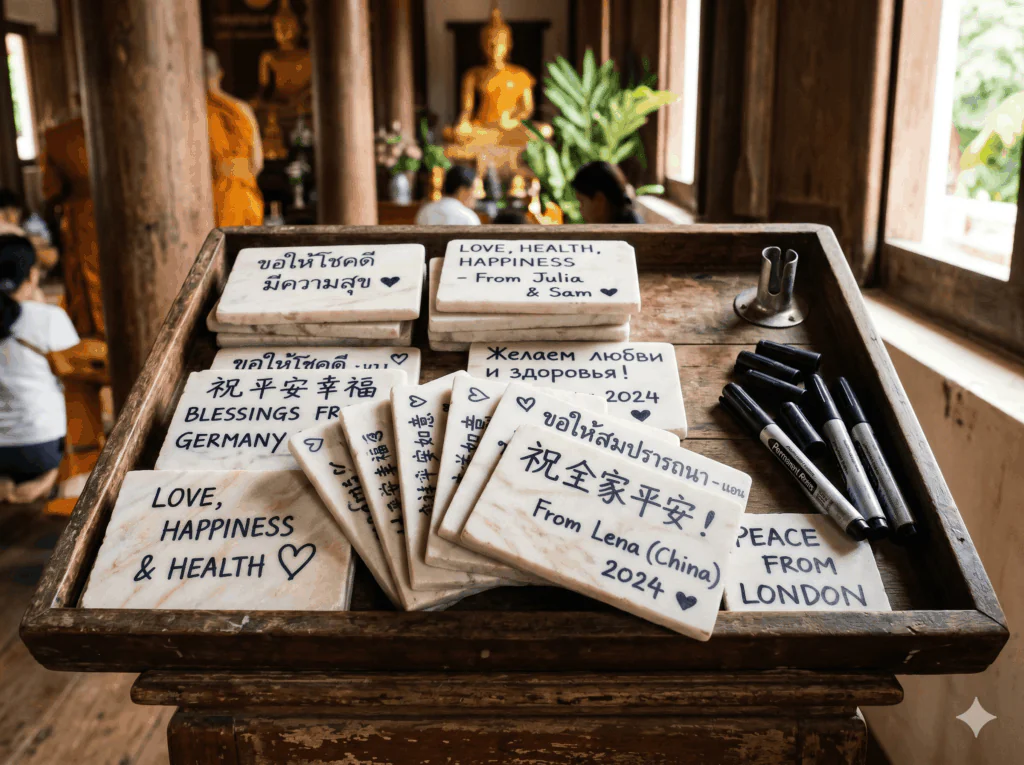 ขอให้โชคดี
มีความสุข ♥
LOVE, HEALTH,
HAPPINESS
- From Julia
& Sam ♥
ขอให้โชคดี
Желаем любви
и здоровья!
2024 ♥
祝平安幸福
BLESSINGS FR
GERMANY
LOVE,
HAPPINESS
& HEALTH ♡
ขอให้สมปรารถนา - แอน
祝全家平安!
From Lena (China)
2024 ♥
PEACE
FROM
LONDON
Permanent